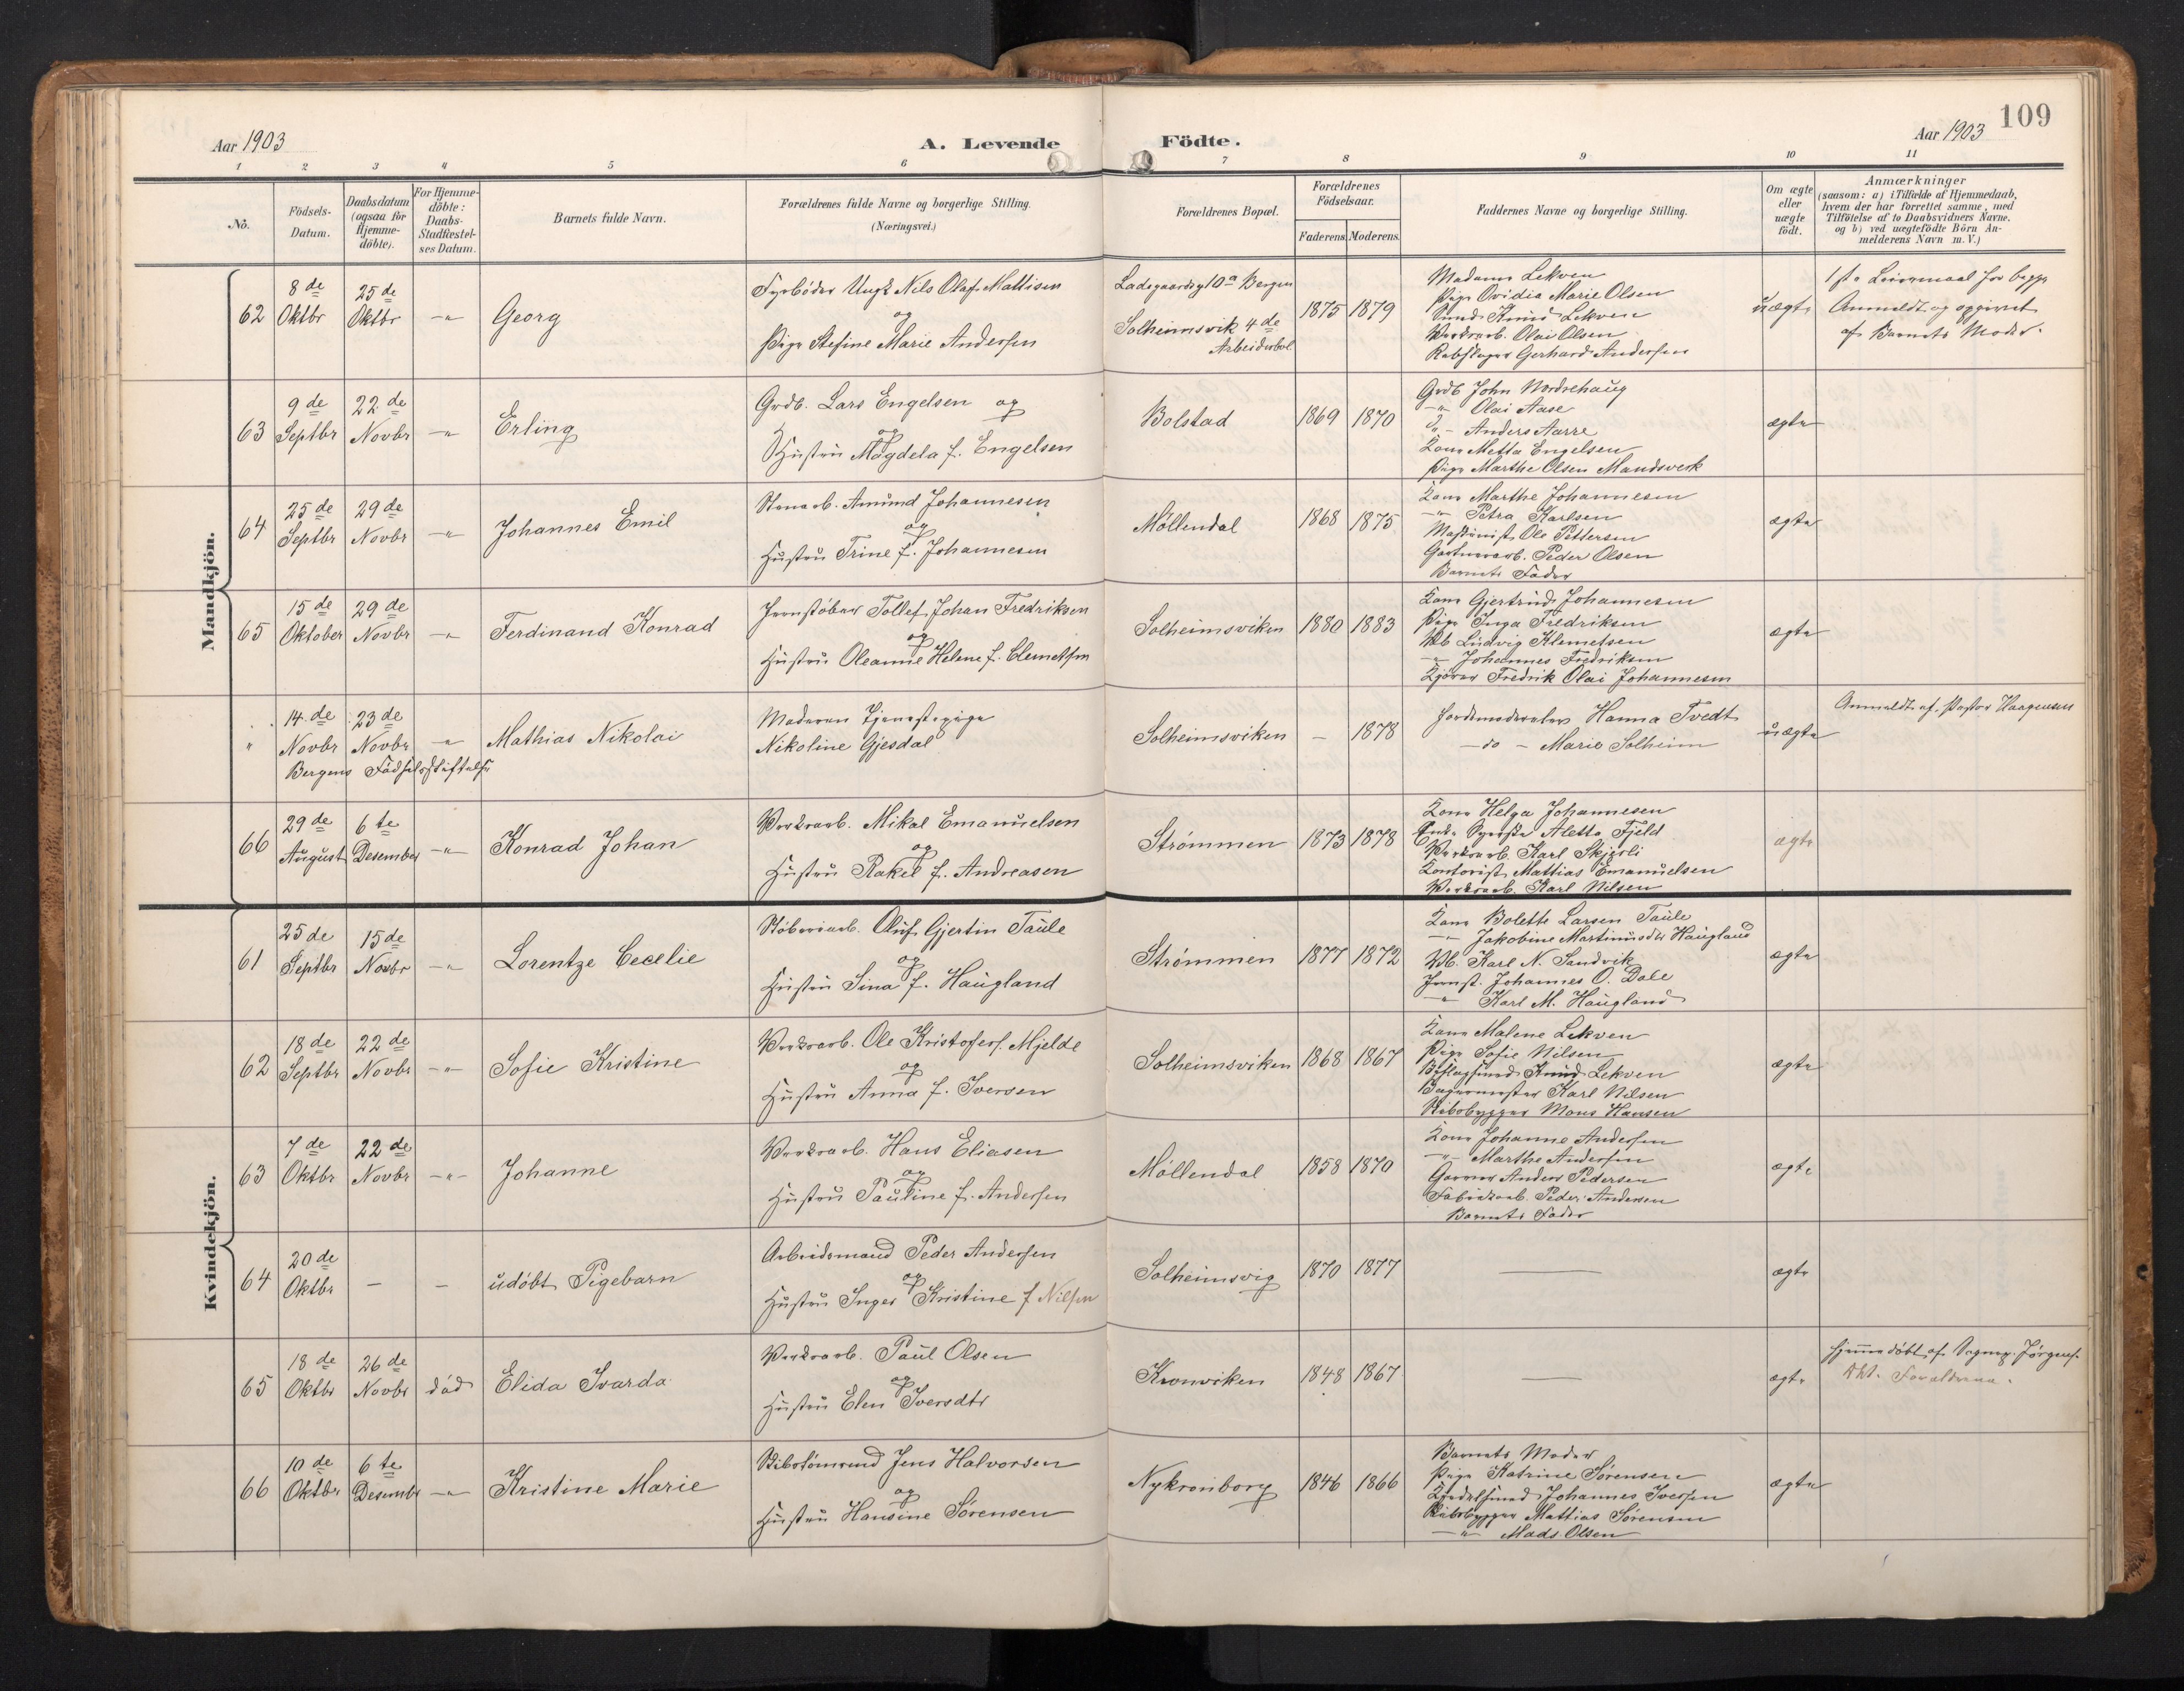 109
Aar 1903
A. Levende
Födte.
Aar 1903
1 2 3 4 5 6 7 8 9 10 11
No.
Födsels-Datum.
Daabsdatum (ogsaa for Hjemme-döbte).
For Hjemme-döbte: Daabs-Stadfæstel-ses Datum.
Barnets fulde Navn.
Forældrenes fulde Navne og borgerlige Stilling.
(Næringsvei.)
Forældrenes Bopæl.
Forældrenes Födselsaar.
Faderens. Moderens.
Faddernes Navne og borgerlige Stilling.
Om ægte eller uægte födt.
Anmærkninger
(saasom: a) i Tilfælde af Hjemmedaab,
hvem der har forrettet samme, med
Tilföielse af to Daabsvidners Navne.
og b) ved uægtefödte Börn An-
melderens Navn m.V.)
Mandkjön.
62 8de Oktbr 25de Oktbr -"- Georg
Fyrbøder Ungk Nils Olaf Mattisen
og
Pige Stefine Marie Andersen
Ladegaardsg 10a Bergen
Solheimsvik 4de
Arbeiderbol
1875 1879
Madame Lekven
Pige Ovidia Marie Olsen
Smed Knud Lekven
Værksarb. Olai Olsen
Rebslager Gerhard Andersen
uægte
1ste Leiermaal for begge
Anmeldt og opgivet
af Barnets Moder.
63 9de Septbr 22de Novbr -"- Erling
Grdb. Lars Engelsen og
og
Hustru Magdela f. Engelsen
Bolstad
1869 1870
Grdb John Nordrehaug
-"- Olai Aase
-"- Anders Aarre
Kone Metta Engelsen
Pige Marthe Olsen Mandsverk
ægte
64 25de Septbr 29de Novbr -"- Johannes Emil
Stenarb. Amund Johannesen
og
Hustru Trine f. Johannesen
Møllendal
1868 1875
Kone Marthe Johannesen
-"- Petra Karlsen
Maskinist Ole Pettersen
Gartnerarb. Peder Olsen
Barnets Fader
ægte
65 15de Oktober 29de Novbr -"- Ferdinand Konrad
Jernstøber Tollef Johan Fredriksen
og
Hustru Oleanne Helene f. Clemetsen
Solheimsviken
1880 1883
Kone Gjertrud Johannesen
Pige Inga Fredriksen
Vb Ludvig Klemetsen
-"- Johannes Fredriksen
Kjører Fredrik Olai Johannesen
ægte
" 14.de Novbr 23de Novbr -"- Mathias Nikolai
Bergens Fødselsstiftelse
Moderen Tjenestepige
Nikoline Gjesdal
Solheimsviken
- 1878
Jordemoderelev Hanna Tvedt
-do- Marie Solheim
uægte
Anmeldt af Pastor Haagensen
66 29de August 6te Desember -"- Konrad Johan
Værksarb. Mikal Emanuelsen
og
Hustru Rakel f. Andreasen
Strømmen
1873 1878
Kone Helga Johannesen
Aletta Fjeld
Værksarb. Karl Skjerli
Kontorist Mattias Emanuelsen
Værksarb. Karl Nilsen
ægte
Kvindekjön.
61 25de Septbr 15de Novbr -"- Lorentze Cecelie
Støberiarb. Oluf Gjertin Taule
og
Hustru Sina f. Haugland
Strømmen
1877 1872
Kone Bolette Larsen Taule
-"- Jakobine Martinusdtr Haugland
Vb. Karl N. Sandvik
Jernst. Johannes O. Dale
-"- Karl M. Haugland
ægte
62 18de Septbr 22de Novbr -"- Sofie Kristine
Værksarb. Ole Kristofers. Mjelde
og
Hustru Anna f. Iversen
Solheimsviken
1868 1867
Kone Malene Lekven
Pige Sofie Nilsen
Beslagsmed Knud Lekven
Bagermester Karl Nilsen
Skibsbygger Mons Hansen
ægte
63 7de Oktbr 22de Novbr -"- Johanne
Værksarb. Hans Eliasen
og
Hustru Pauline f. Andersen
Møllendal
1858 1870
Kone Johanne Andersen
-"- Marthe Andersen
Garver Anders Pedersen
Fabrikarb. Peder Andersen
Barnets Fader
ægte
64 20de Oktbr - - udøbt Pigebarn
Arbeidsmand Peder Andersen
og
Hustru Inger Kristine f Nilsen
Solheimsvig
1870 1877
ægte
65 18de Oktbr 26de Novbr død Elida Ivarda
Værksarb. Paul Olsen
og
Hustru Elen Iversdtr
Kronviken
1848 1867
ægte
hjemmedøbt af Sognep. Jørgens.
Vht. Forældrene.
66 10de Oktbr 6te Desembr -"- Kristine Marie
Skibstømmd Jens Halvorsen
og
Hustru Hansine Sørensen
Nykronborg
1846 1866
Barnets Moder
Pige Katrine Sørensen
Johannes Iversen
Skibsbygger Mattias Sørensen
-"- Mads Olsen
ægte